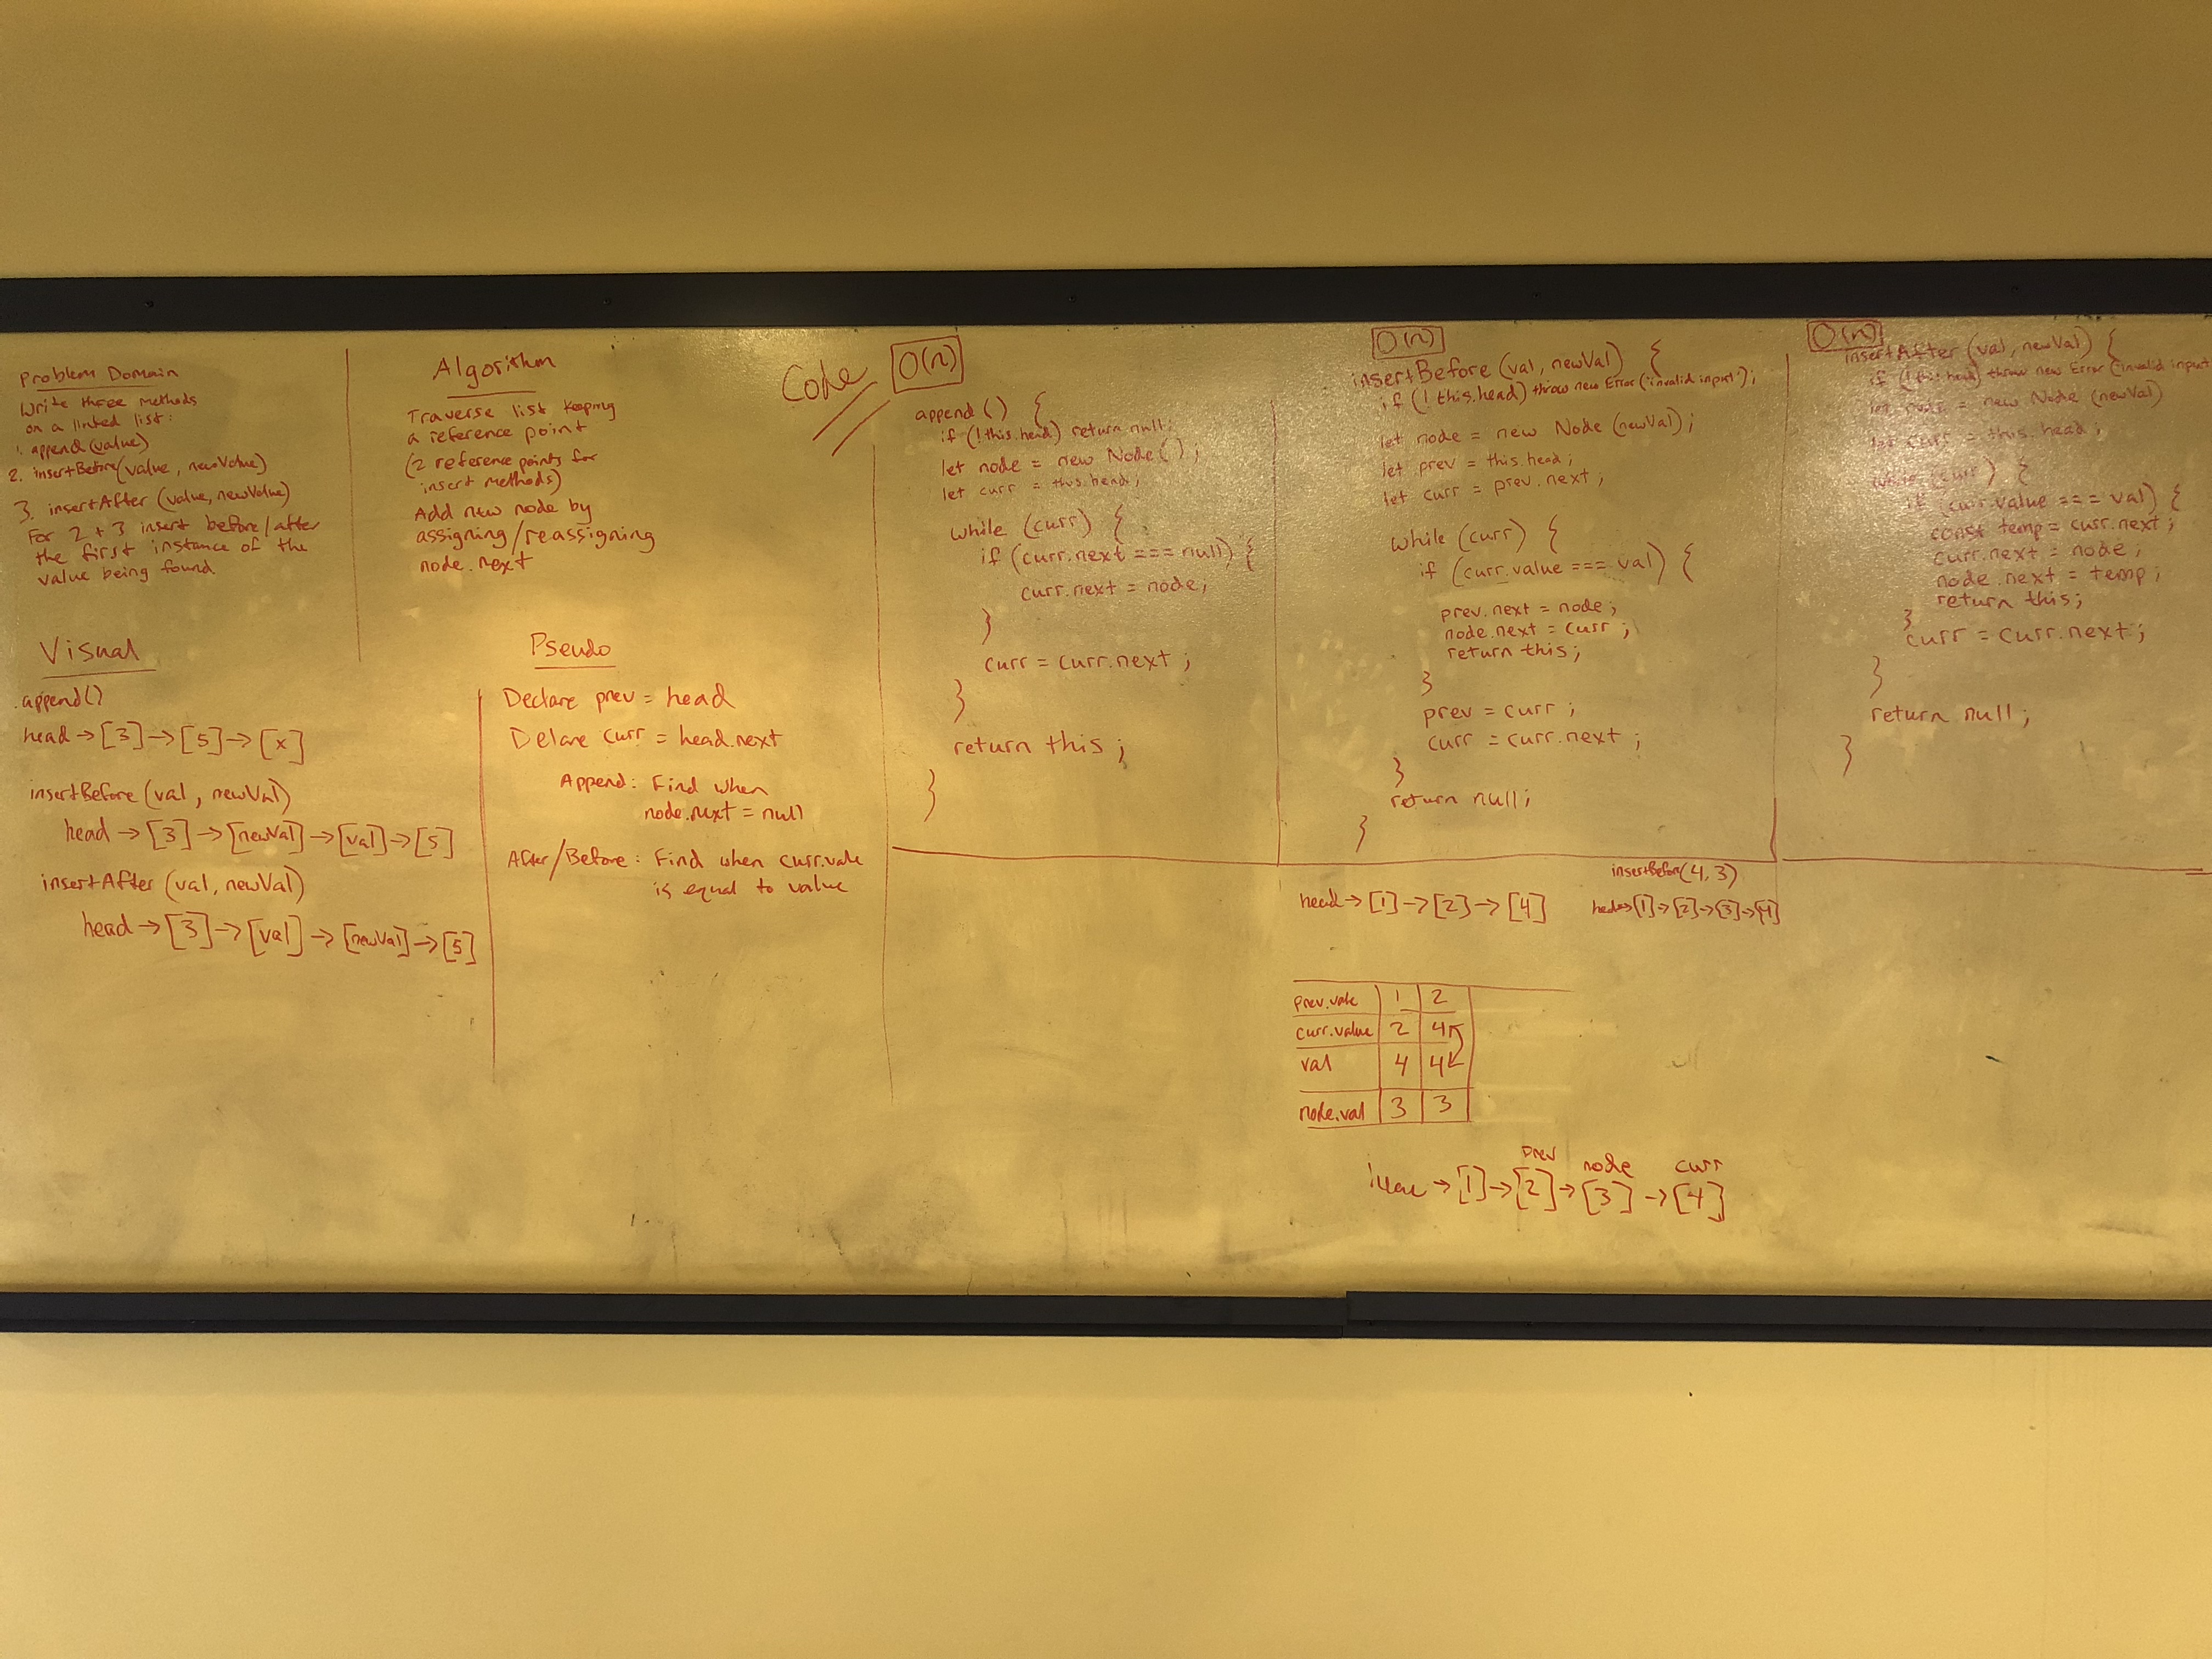 Problem Domain
Write three methods
on a linked list:
1. append(value)
2. insertBefore(value, newValue)
3. insertAfter(value, newValue)
For 2 + 3 insert before/after
the first instance of the
value being found.
Algorithm
Traverse list keeping
a reference point
(2 reference points for
insert methods)
Add new node by
assigning/reassigning
node.next
Visual
.append()
head → [3] → [5] → [x]
insertBefore(val, newVal)
head → [3] → [newVal] → [val] → [5]
insertAfter(val, newVal)
head → [3] → [val] → [newVal] → [5]
Pseudo
Declare prev = head
Delare curr = head.next
Append: Find when
node.next = null
After/Before: Find when curr.vale
is equal to value
Code
O(n)
append() {
if (!this.head) return null;
let node = new Node();
let curr = this.head;
while (curr) {
if (curr.next === null) {
curr.next = node;
}
curr = curr.next;
}
return this;
}
O(n)
insertBefore(val, newVal) {
if (!this.head) throw new Error('invalid input');
let node = new Node(newVal);
let prev = this.head;
let curr = prev.next;
while (curr) {
if (curr.value === val) {
prev.next = node;
node.next = curr;
return this;
}
prev = curr;
curr = curr.next;
}
return null;
}
O(n)
insertAfter(val, newVal) {
if (!this.head) throw new Error('invalid input
let node = new Node(newVal)
let curr = this.head;
while (curr) {
if (curr.value === val) {
const temp = curr.next;
curr.next = node;
node.next = temp;
return this;
}
curr = curr.next;
}
return null;
}
head → [1] → [2] → [4]
insertBefore(4,3)
head → [1] → [2] → [3] → [4]
prev.vale 1 2
curr.value 2 4
val 4 4
node.val 3 3
prev node curr
→ [1] → [2] → [3] → [4]